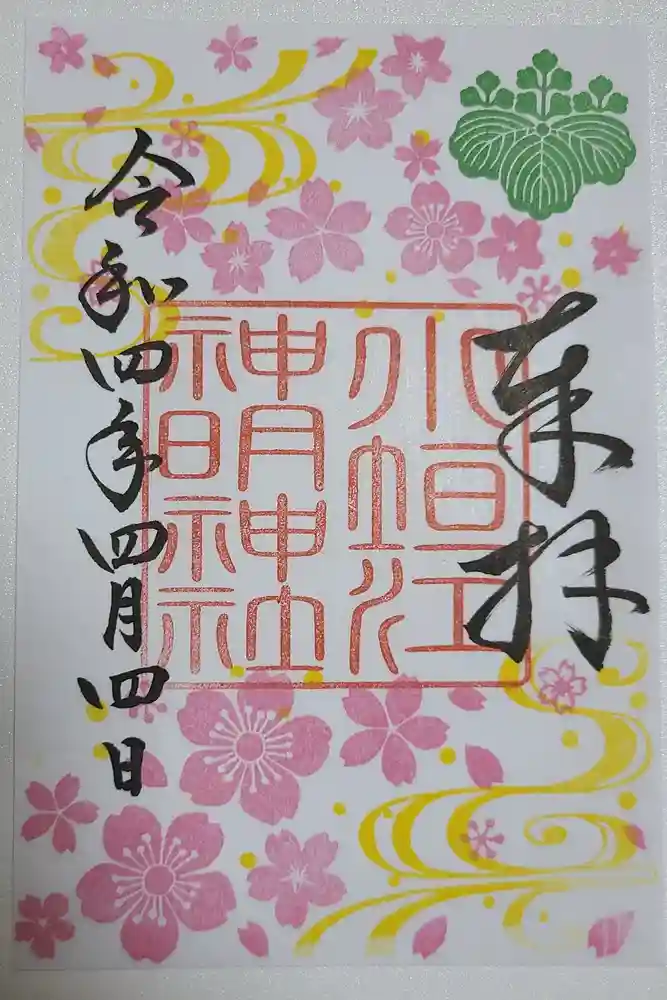 奉拝
小垣江
神明神社
令和四年四月四日